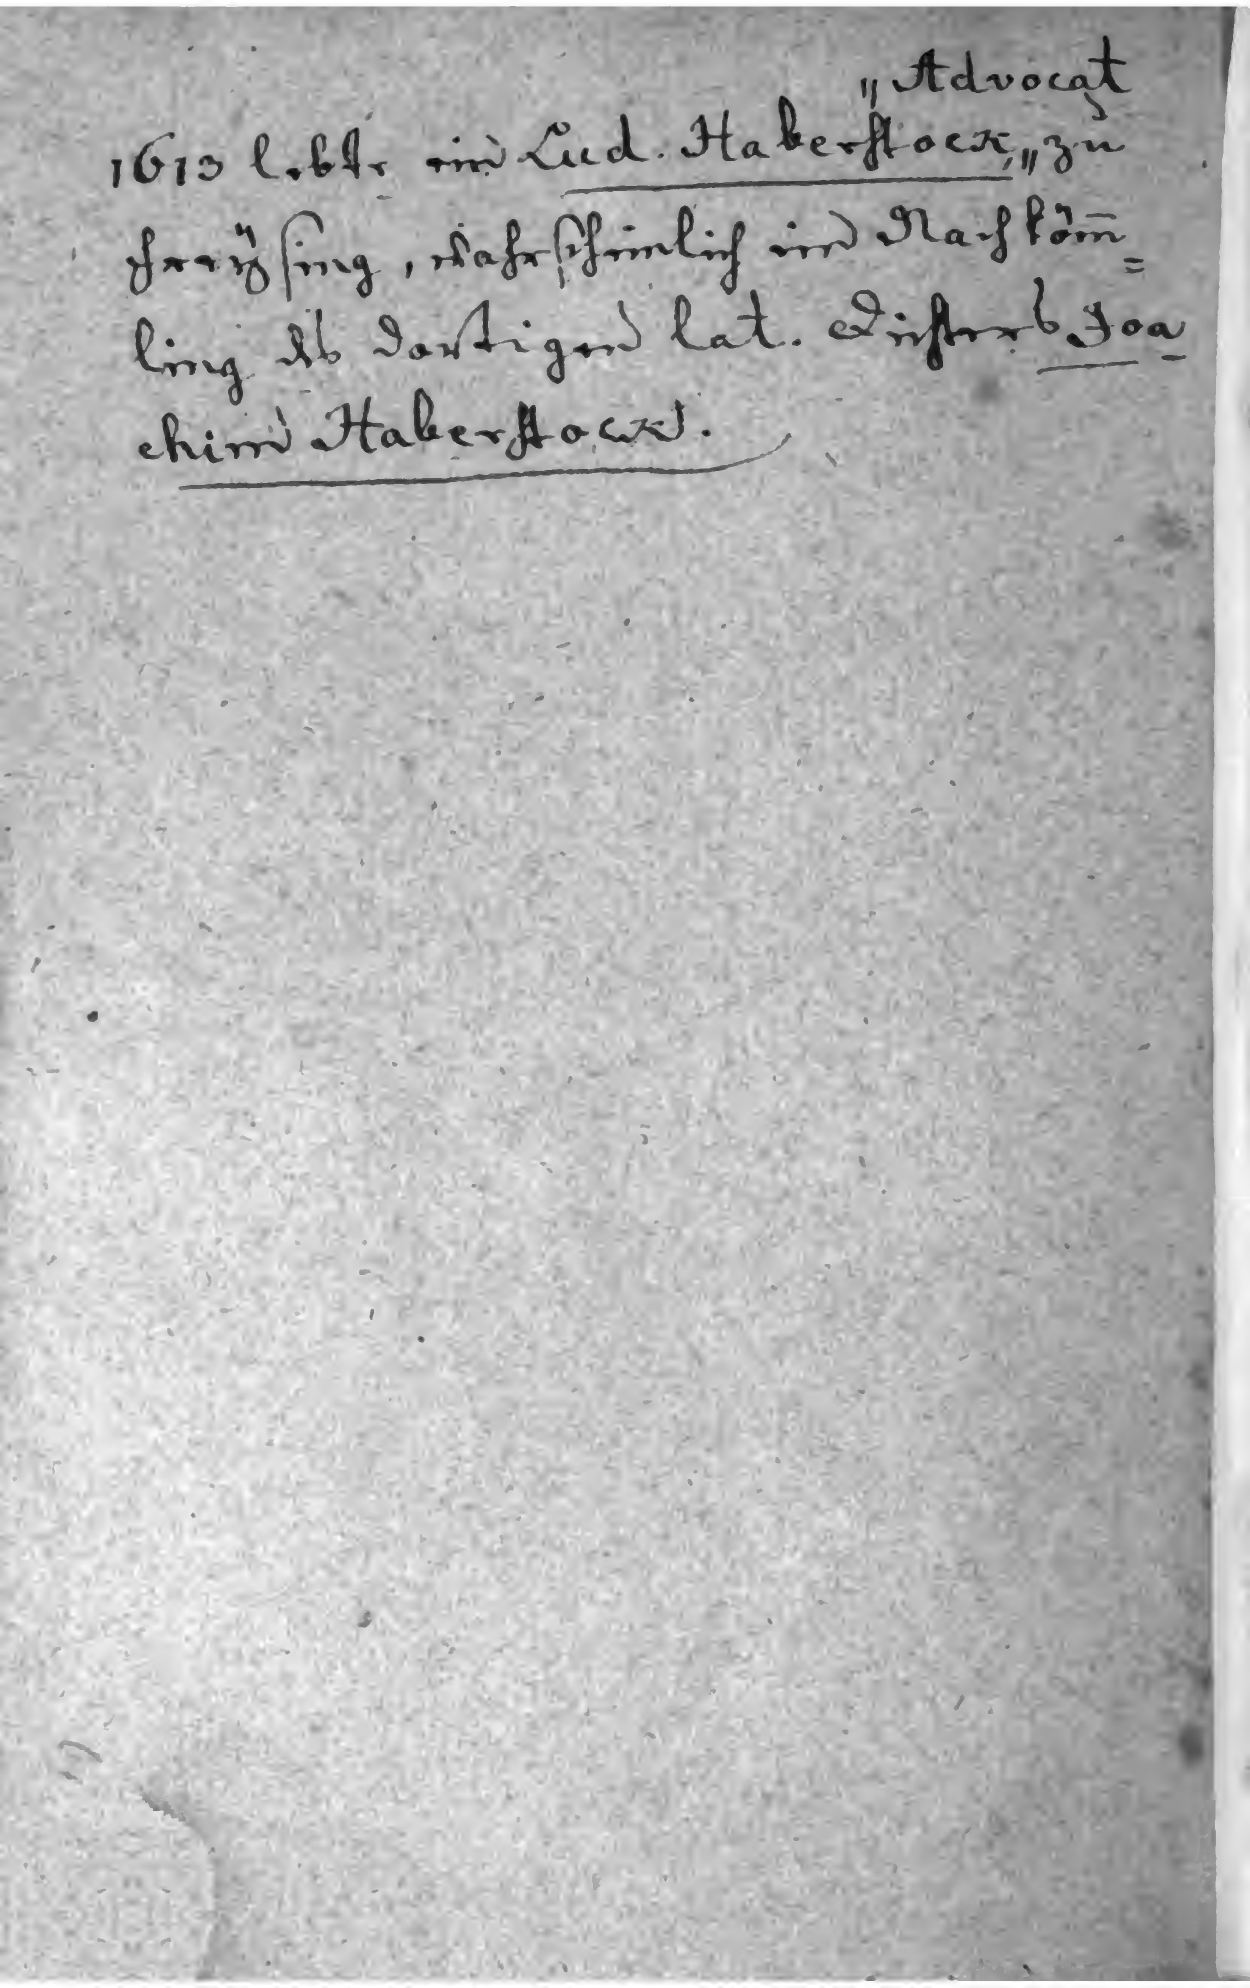 „Advocat
1613 lebte ein Lud. Haberstock, „zu
Freÿsing, wahrscheinlich ein Nachköm̅=
ling des dortigen lat. Dichters Joa
chim Haberstock.